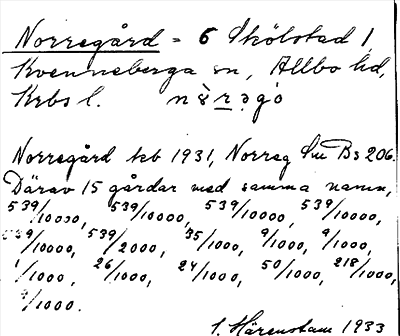 Norregård = 6 Skölstad 1,
Kvenneberga sn, Allbo hd,
Krbs l. nòrəgó
Norregård kb 1931, Norreg Sm Bs 206.
Därav 15 gårdar med samma namn,
539/10000, 539/10000, 539/10000, 539/10000,
539/10000, 539/2000, 35/1000, 9/1000, 9/1000,
1/1000, 26/1000, 24/1000, 50/1000, 218/1000,
9/1000.
I. Härenstam 1933